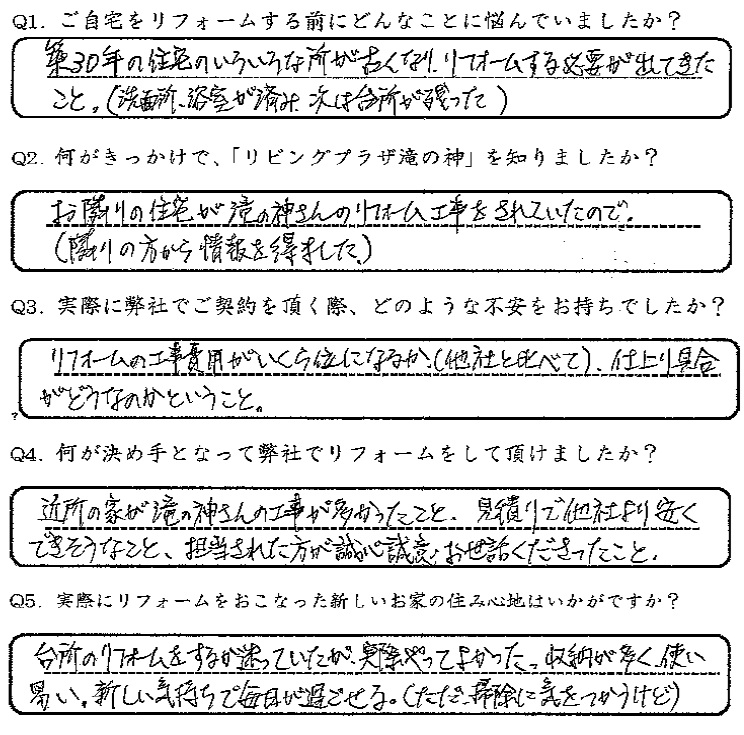 Q1. ご自宅をリフォームする前にどんなことに悩んでいましたか？
築30年の住宅のいろいろな所が古くなり、リフォームする必要が出てきた
こと。(洗面所、浴室が済み次は台所が残った)
Q2. 何がきっかけで、「リビングプラザ滝の神」を知りましたか？
お隣りの住宅が滝の神さんのリフォーム工事をされていたので。
(隣りの方から情報を得ました。)
Q3. 実際に弊社でご契約を頂く際、どのような不安をお持ちでしたか？
リフォームの工事費用がいくら位になるか、(他社と比べて)、仕上り具合
がどうなのかということ。
Q4. 何が決め手となって弊社でリフォームをして頂けましたか？
近所の家が滝の神さんの工事が多かったこと、見積りで他社より安く
できそうなこと、担当された方が誠心誠意お世話くださったこと。
Q5. 実際にリフォームをおこなった新しいお家の住み心地はいかがですか？
台所のリフォームをするか迷っていたが、実際やってよかった。収納が多く、使い
易い。新しい気持ちで毎日が過ごせる。(ただ、掃除に気をつかうけど)